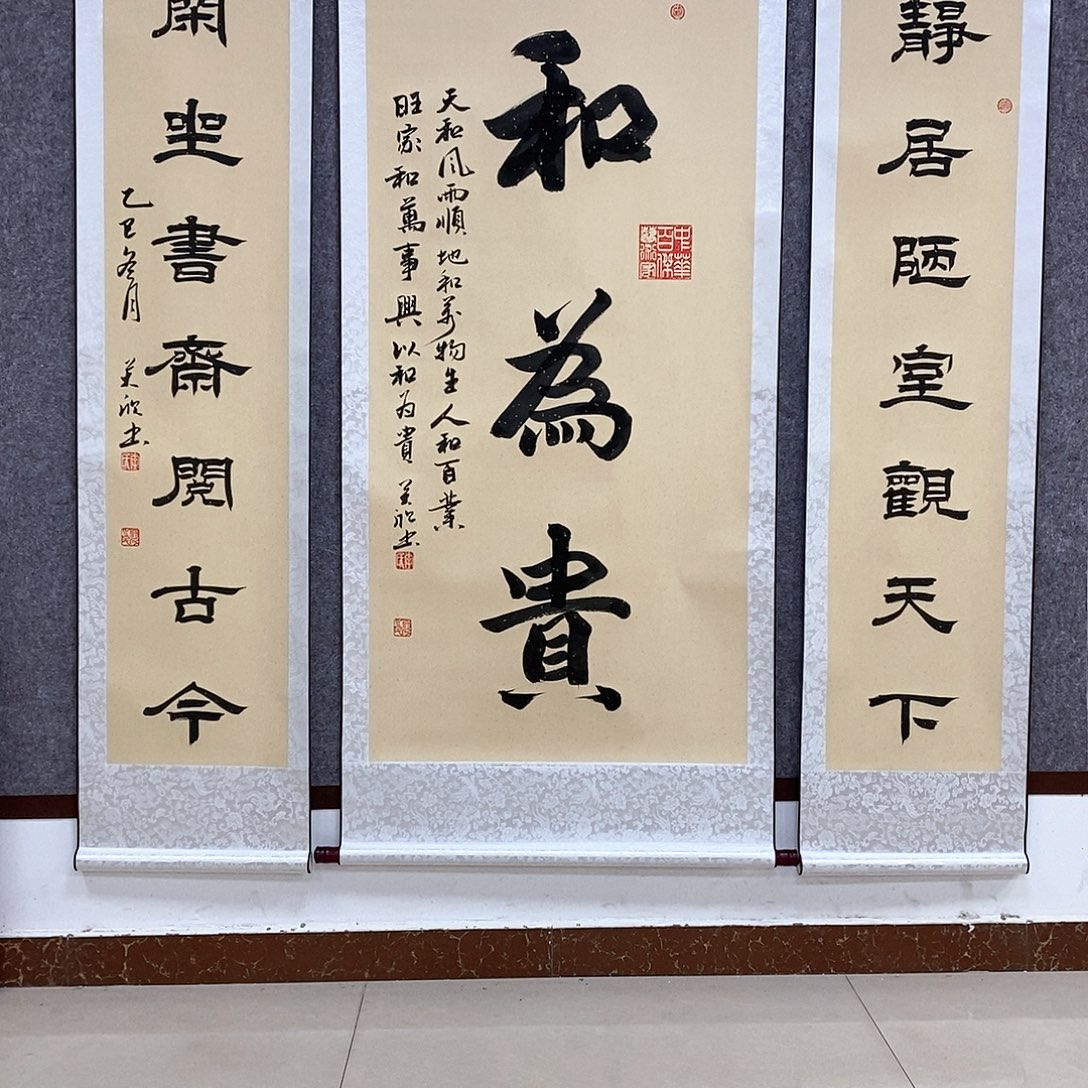 靜居陋室觀天下
和為貴
天和風雨順地和萬物生人和百業
旺家和萬事興以和为貴 美欣书
中華百傑藝術家
閑坐書齋閱古今
乙巳冬月 美欣书